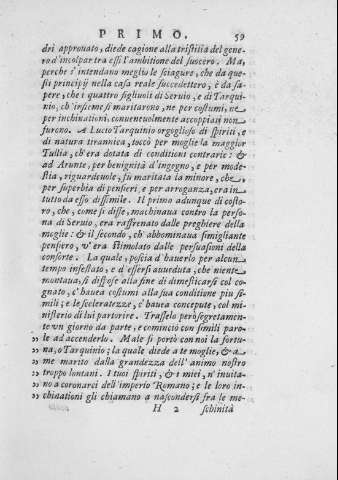 PRIMO. 59
dri approuato, diede cagione alla tristitia del gene-
ro d'incolpar tra essi l'ambitione del suocero. Ma,
perche s'intendano meglio le sciagure, che da que-
sti principij nella casa reale succedettero, è da sa-
pere, che i quattro figliuoli di Seruio, e di Tarqui-
nio, ch'insieme si maritarono, ne per costumi, ne
per inchinationi, conueneuolmente accoppiati non
furono. A Lucio Tarquinio orgoglioso di spiriti, e
di natura tirannica, toccò per moglie la maggior
Tullia, ch'era dotata di conditioni contrarie: &
ad Arunte, per benignità d'ingegno, e per mode-
stia, riguardeuole, fu maritata la minore, che,
per superbia di pensieri, e per arroganza, era in
tutto da esso dissimile. Il primo adunque di costo-
ro, che, come si disse, machinaua contro la perso-
na di Seruio, era raffrenato dalle preghiere della
moglie: & il secondo, ch'abbominaua simigliante
pensiero, v'era stimolato dalle persuasioni della
consorte. La quale, poscia d'hauerlo per alcun
tempo infestato, e d'essersi aueduta, che niente
montaua, si dispose alla fine di dimesticarsi col co-
gnato, c'hauea costumi alla sua conditione piu si-
mili; e le sceleratezze, c'hauea concepute, col mi-
nisterio di lui partorire. Trasselo però segretamen-
te vn giorno da parte, e cominciò con simili paro-
le ad accenderlo. Male si portò con noi la fortu-
„ na, o Tarquinio; la quale diede a te moglie, & a
„ me marito dalla grandezza dell'animo nostro
„ troppo lontani. I tuoi spiriti, & i miei, n'inuita-
„ no a coronarci dell'imperio Romano; e le loro in-
„ chinationi gli chiamano a nascondersi fra le me-
H 2 schinità